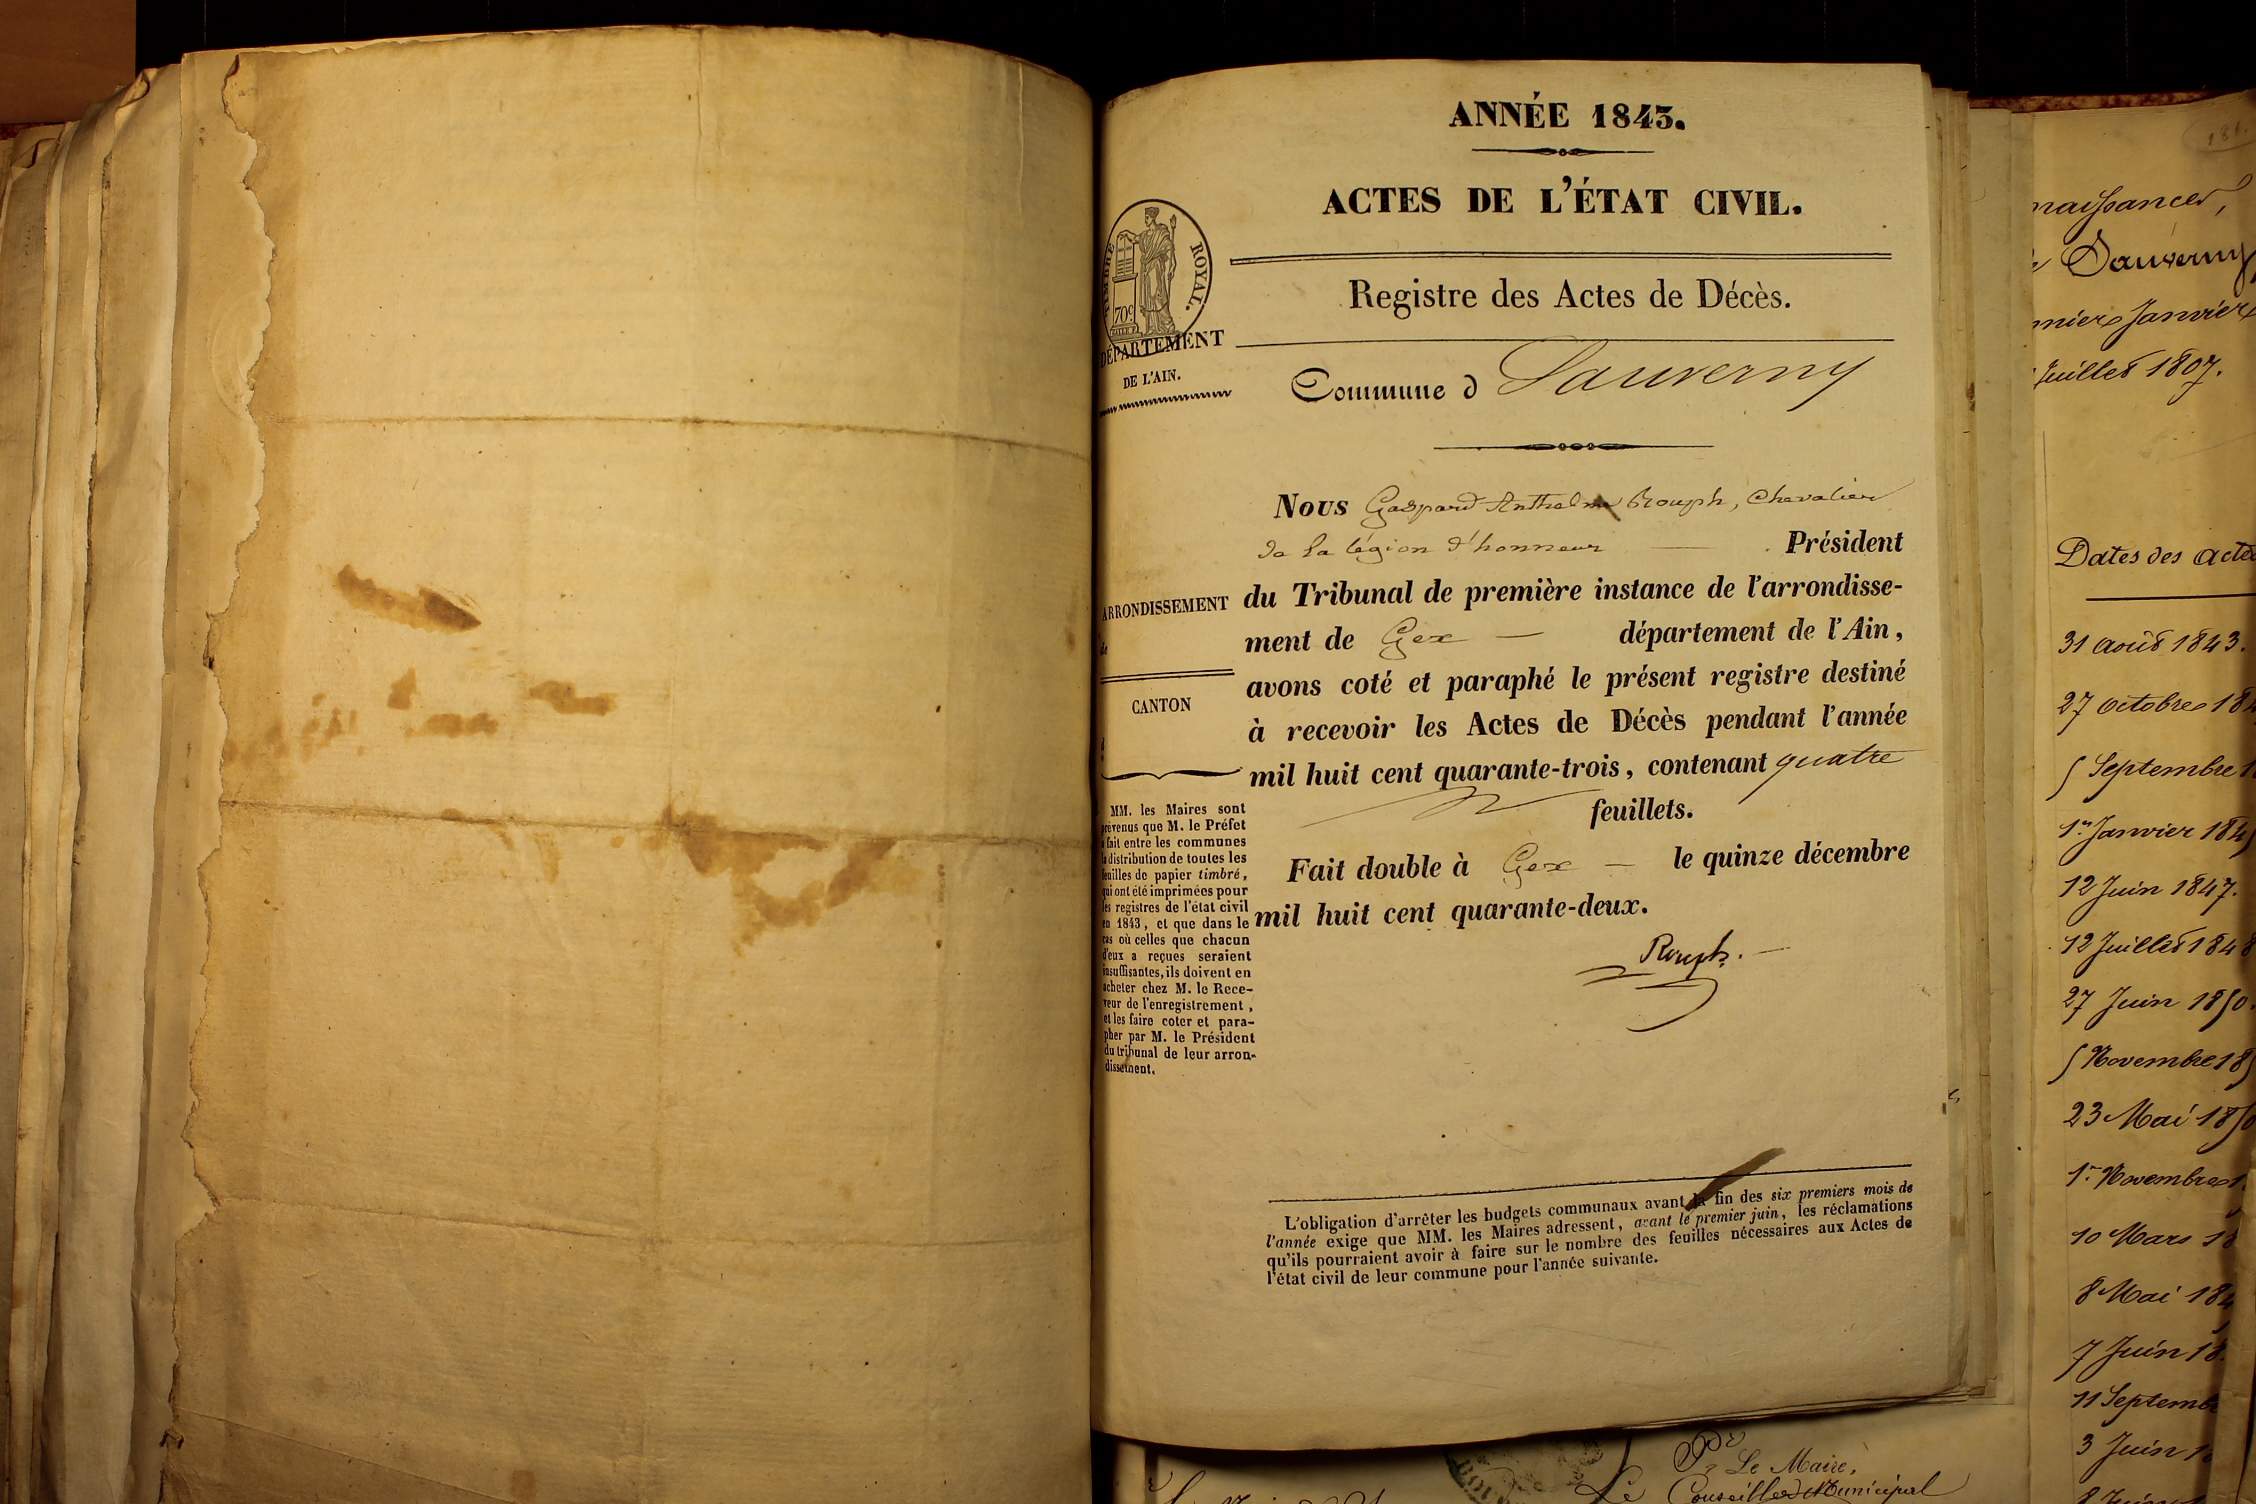 ANNÉE 1843.
ACTES DE L'ÉTAT CIVIL.
TIMBRE ROYAL.
70c
DÉPARTEMENT
DE L'AIN.
Registre des Actes de Décès.
Commune d Sauverny
Nous Gaspard Anthelme Rouph, Chevalier
de la légion d'honneur — Président
du Tribunal de première instance de l'arrondisse-
ment de Gex — département de l'Ain,
avons coté et paraphé le présent registre destiné
à recevoir les Actes de Décès pendant l'année
mil huit cent quarante-trois, contenant quatre
feuillets.
Fait double à Gex — le quinze décembre
mil huit cent quarante-deux.
Rouph.
ARRONDISSEMENT
de
CANTON
d
MM. les Maires sont
prévenus que M. le Préfet
a fait entre les communes
la distribution de toutes les
feuilles de papier timbré,
qui ont été imprimées pour
les registres de l'état civil
en 1843, et que dans le
cas où celles que chacun
d'eux a reçues seraient
insuffisantes, ils doivent en
acheter chez M. le Rece-
veur de l'enregistrement,
et les faire coter et para-
pher par M. le Président
du tribunal de leur arron-
dissement.
L'obligation d'arrêter les budgets communaux avant la fin des six premiers mois de
l'année exige que MM. les Maires adressent, avant le premier juin, les réclamations
qu'ils pourraient avoir à faire sur le nombre des feuilles nécessaires aux Actes de
l'état civil de leur commune pour l'année suivante.
181.
naissances,
Sauverny
Janvier
Juillet 1807.
Dates des acte
31 août 1843.
27 octobre 184
5 Septembre 1
1er Janvier 184
12 Juin 1847.
12 Juillet 1848
27 Juin 1850.
5 Novembre 185
23 Mai 185
1er Novembre 1
10 Mars 18
8 Mai 184
7 Juin 18
11 Septemb
3 Juin 1
Le Maire,
Le Conseiller Municipal